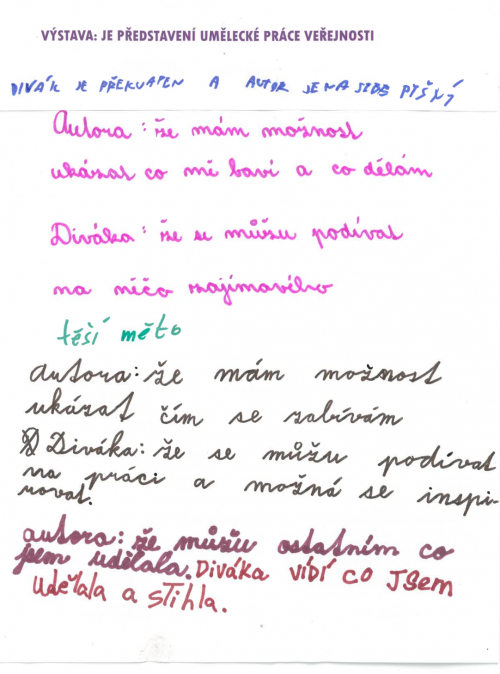 VÝSTAVA: JE PŘEDSTAVENÍ UMĚLECKÉ PRÁCE VEŘEJNOSTI
DIVÁK JE PŘEKVAPEN A AUTOR JE NA SEBE PYŠNÝ
Autora: že mám možnost
ukázat co mě baví a co dělám
Diváka: že se můžu podívat
na něčo zajímavého
těší měto
autora: že mám možnost
ukázat čím se zabívám
Diváka: že se můžu podívat
na práci a možná se inspi-
rovat.
autora: že můžu ostatním co
jsem udělala. Diváka vidí co Jsem
Udělala a stihla.